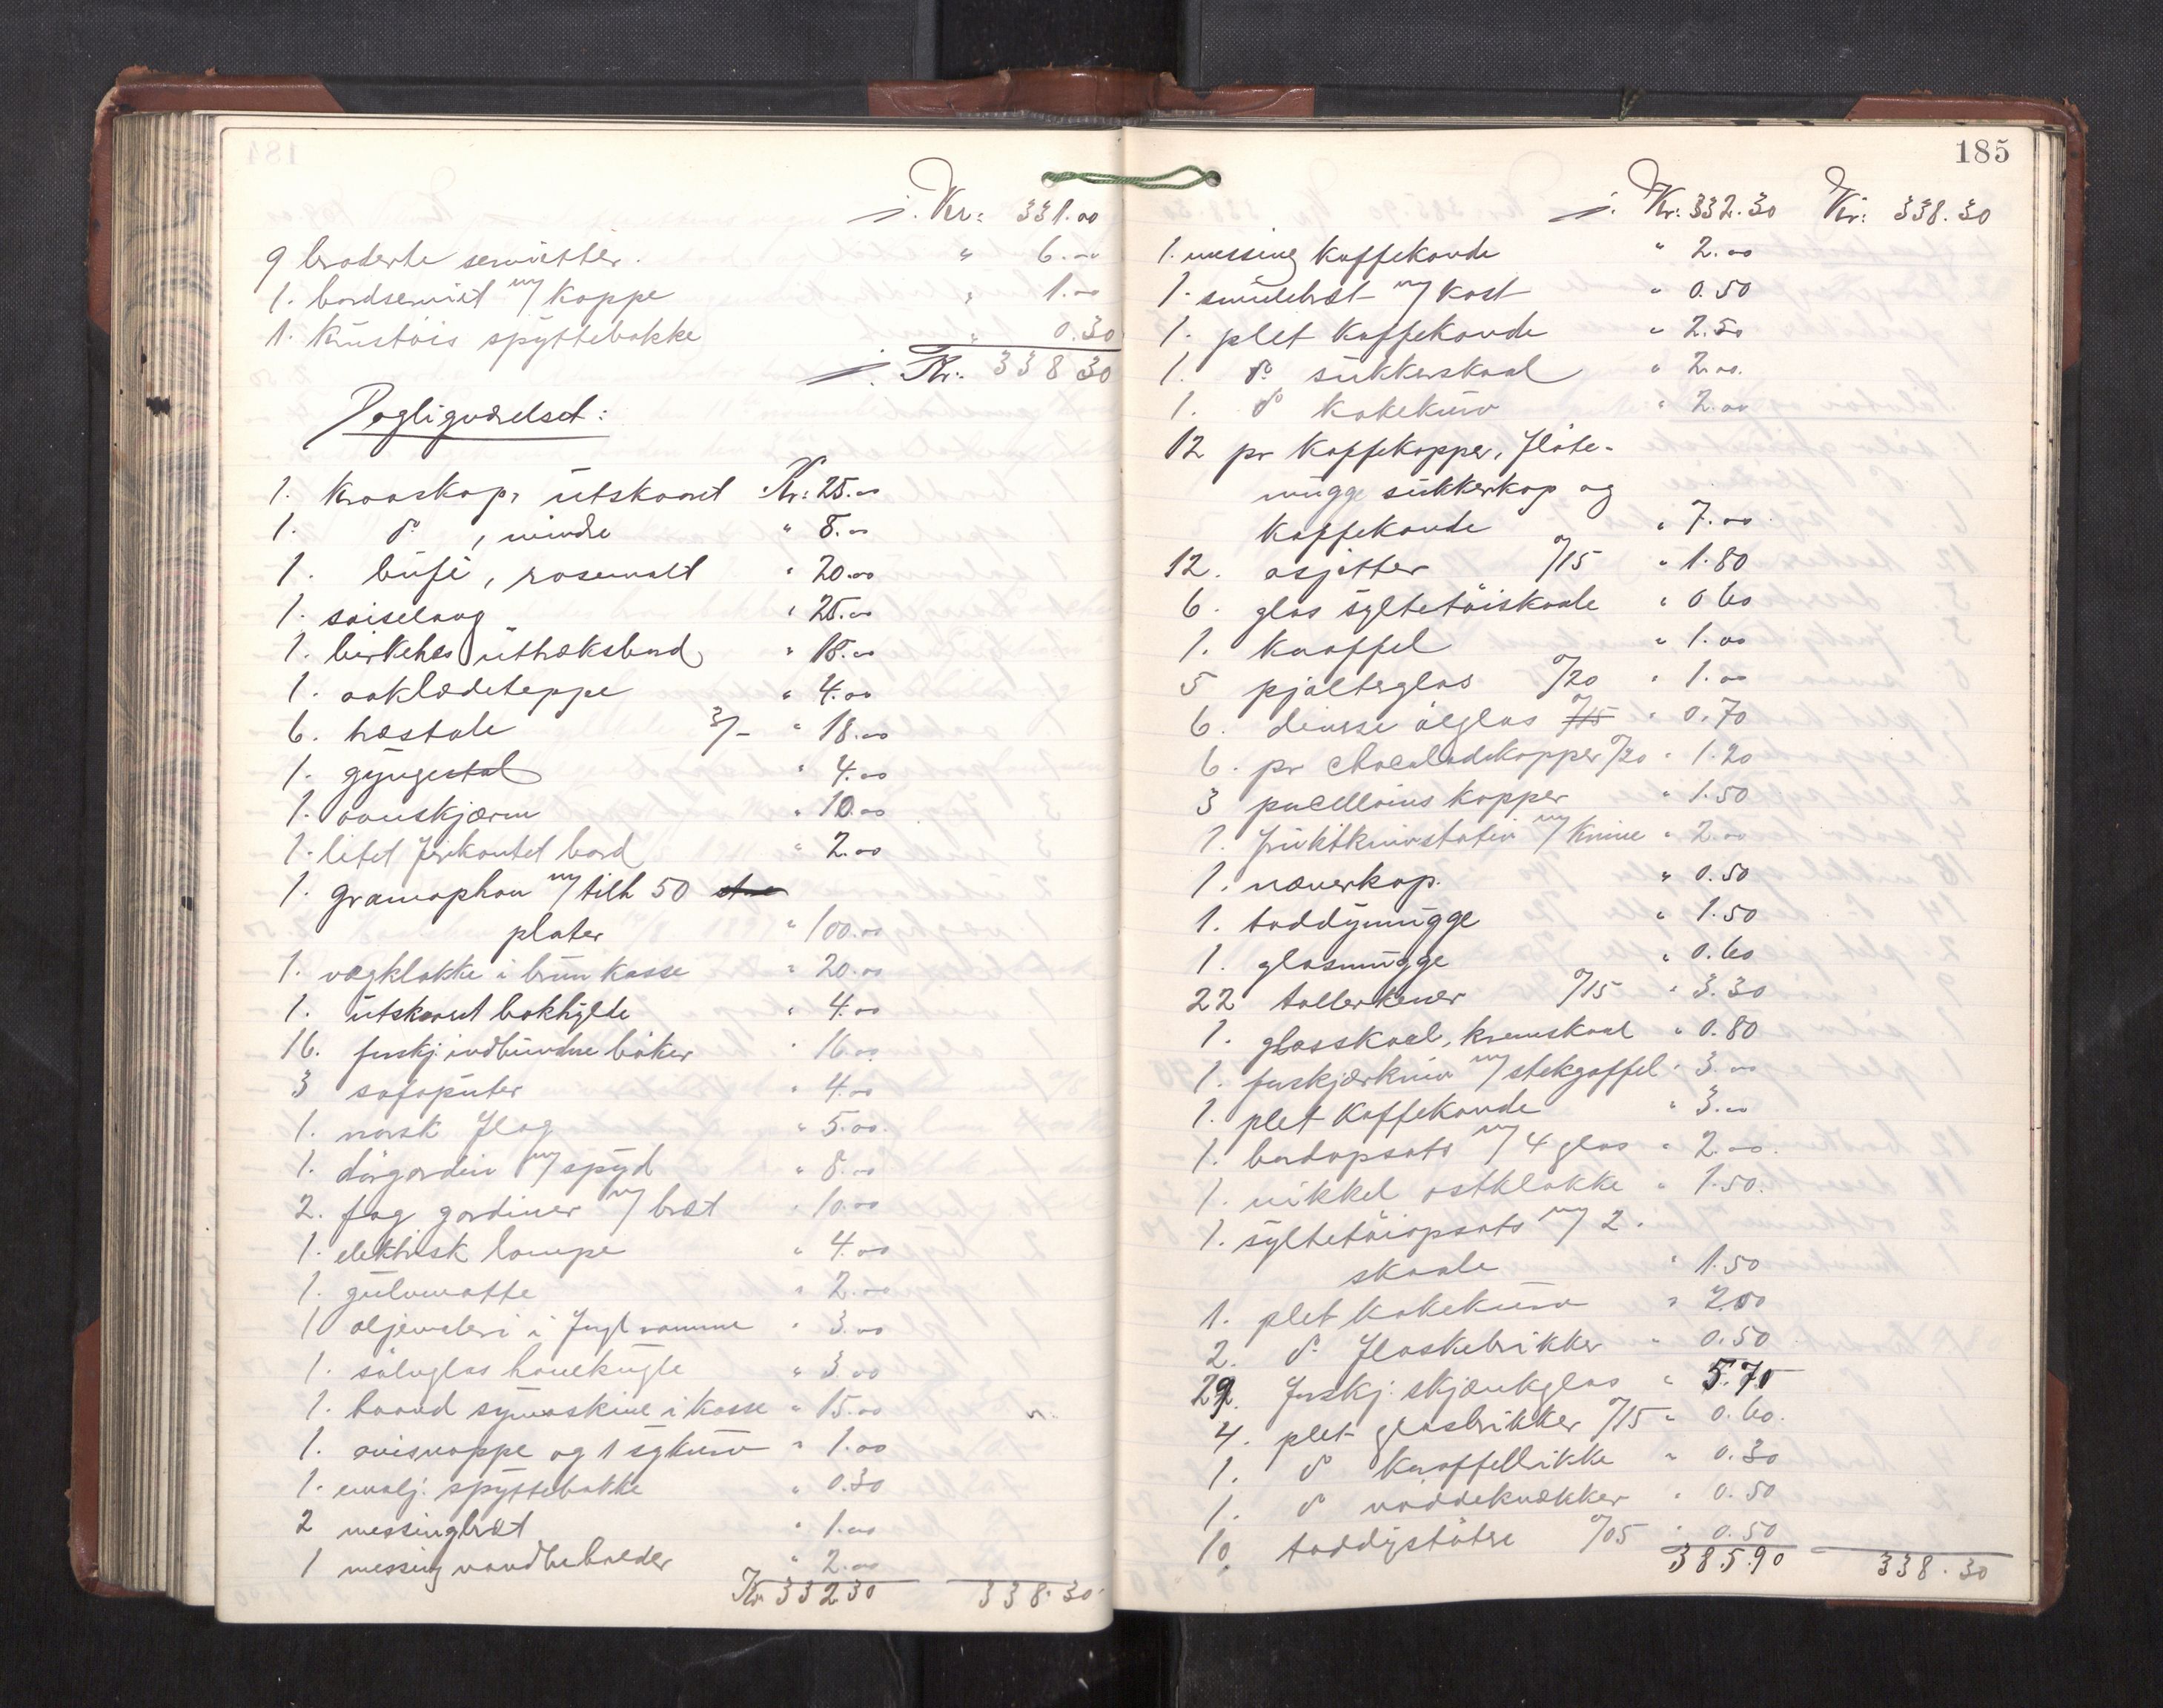 184
÷. Kr: 331.00
9 broderte servietter. " 6.00
1. bordserviet m/ koppe " 1.00
1. krustöis spyttebakke " 0.30
÷. Kr: 338 30
Dagligværelset:
1. krosskap, utskoret Kr: 25.00
1. do , mindre " 8.00
1. büfé, rosemalt " 20.00
1. saiselong " 25.00
1. birkehes uttræksbord " 18.00
1. aaklædeteppe " 4.00
6. træstole 3/- " 18.00
1. gyngestol " 4.00
1. ovnskjærm " 10.00
1. litet firkantet bord " 2.00
1. gramophon m/ tilh 50
plater " 100.00
1. vægklokke i brun kasse " 20.00
1. utskoret bokhylde " 4.00
16. forskj. indbundne böker " 16.00
3 sofaputer " 4.00
1. norsk flag " 5.00
1. dörgardin m/ spyd " 8.00
2. fag gardiner m/ bræt " 10.00
1. elektrisk lampe " 4.00
1. gulvmatte " 2.00
1 oljemaleri i forgl ramme " 3.00
1. sölvglas havekugle " 3.00
1. haand symaskine i kasse " 15.00
1. avismappe og 1 sykurv " 1.00
1. emalj. spyttebakke " 0.30
2 messingbræt " 1.00
1 messing vandbeholder " 2.00
Kr 332 30 338.30
185
÷. Kr: 332.30 Kr: 338.30
1. messing kaffekande " 2.00
1. smulebræt m/ kost " 0.50
1. plet kaffekande " 2.50
1. do sukkerskaal " 2.00.
1. do kakekurv " 2.00
12 pr kaffekopper, flöte-
mugge sukkerkop og
kaffekande " 7.00
12. asjetter º/15 " 1.80
6. glas syltetöiskaale " 0 60
1. karaffel " 1.00
5 pjolterglas º/20 " 1.00
6. diverse ölglas º/15 " 0.70
6. pr chocoladekopper º/20 " 1.20
3 porcellains kopper " 1.50
1. fruktknivstativ m/ knive " 2.00
1. næverkop. " 0.50
1. toddymugge " 1.50
1. glasmugge " 0.60
22 tallerkener º/15 " 3.30
1. glasskaal, kremskaal " 0.80
1. forskjærkniv m/ stekgaffel " 3.00
1. plet kaffekande " 3.00
1. bordopsats m/ 4 glas " 2.00.
1. nikkel ostklokke " 1.50.
1. syltetöiopsats m/ 2.
skaale " 1.50
1. plet kakekurv " 2.00
2. do flaskebrikker " 0.50
29. forskj. skjænkglas " 5.70
4. plet glasbrikker º/15 " 0.60.
1. do karaffelbrikke " 0.30
1. do nöddeknækker " 0.50
10. toddystötre º/05 " 0.50
385.90 338.30